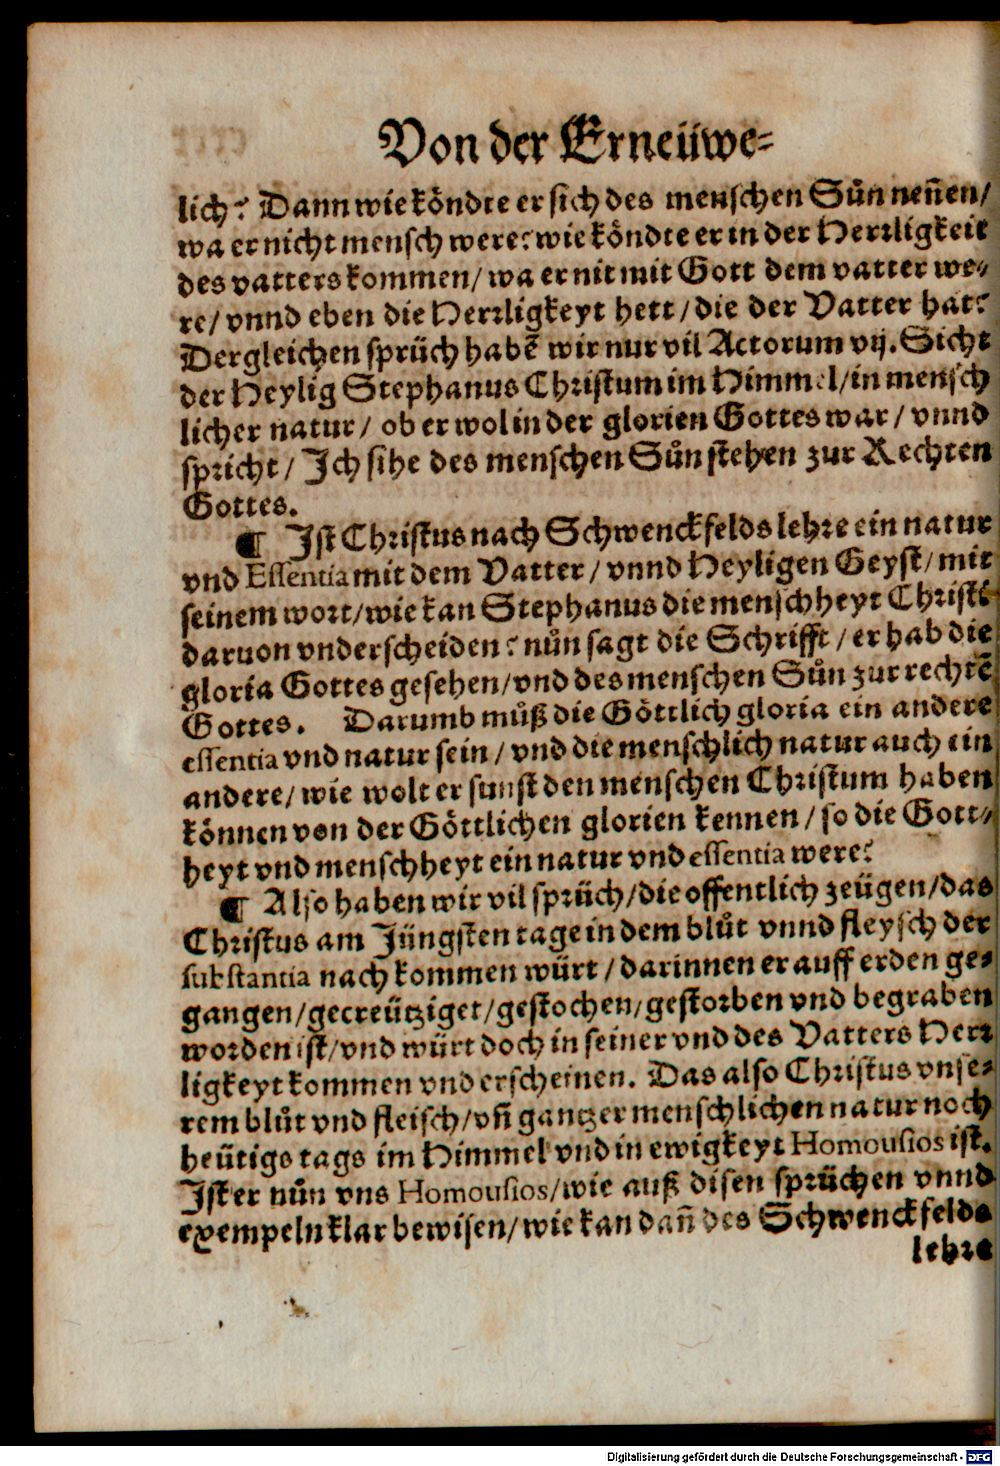 Von der Erneüwe-
lich? Dann wie köndte er sich des menschen Sůn neñen/
wa er nicht mensch were? wie köndte er in der Herrligkeit
des vatters kommen/ wa er nit mit Gott dem vatter we-
re/ vnnd eben die Herrligkeyt hett/ die der Vatter hat?
Dergleichen sprüch habē wir nur vil Actorum vij. Sicht
der Heylig Stephanus Christum im Himmel/ in mensch
licher natur/ ob er wol in der glorien Gottes war/ vnnd
spricht/ Ich sihe des menschen Sůn stehen zur Rechten
Gottes.
¶ Ist Christus nach Schwenckfelds lehre ein natur
vnd Essentia mit dem Vatter/ vnnd Heyligen Geyst/ mit
seinem wort/ wie kan Stephanus die menschheyt Christi
daruon vnderscheiden? nůn sagt die Schrifft/ er hab die
gloria Gottes gesehen/ vnd des menschen Sůn zur rechtē
Gottes. Darumb můß die Göttlich gloria ein andere
essentia vnd natur sein/ vnd die menschlich natur auch ein
andere/ wie wolt er sunst den menschen Christum haben
können von der Göttlichen glorien kennen/ so die Gott-
heyt vnd menschheyt ein natur vnd essentia were?
¶ Also haben wir vil sprüch/ die offentlich zeügen/ das
Christus am Jüngsten tage in dem blůt vnnd fleysch der
substantia nach kommen würt/ darinnen er auff erden ge-
gangen/ gecreützigct/ gestochen/ gestorben vnd begraben
worden ist/ vnd würt doch in seiner vnd des Vatters Herr
ligkeyt kommen vnd erscheinen. Das also Christus vnse-
rem blůt vnd fleisch/ vñ gantzer menschlichen natur noch
heütigs tags im Himmel vnd in ewigkeyt Homousios ist.
Ist er nůn vns Homousios/ wie auß disen sprüchen vnnd
exempeln klar bewisen/ wie kan dañ des Schwenckfelds
lehre
Digitalisierung gefördert durch die Deutsche Forschungsgemeinschaft - DFG